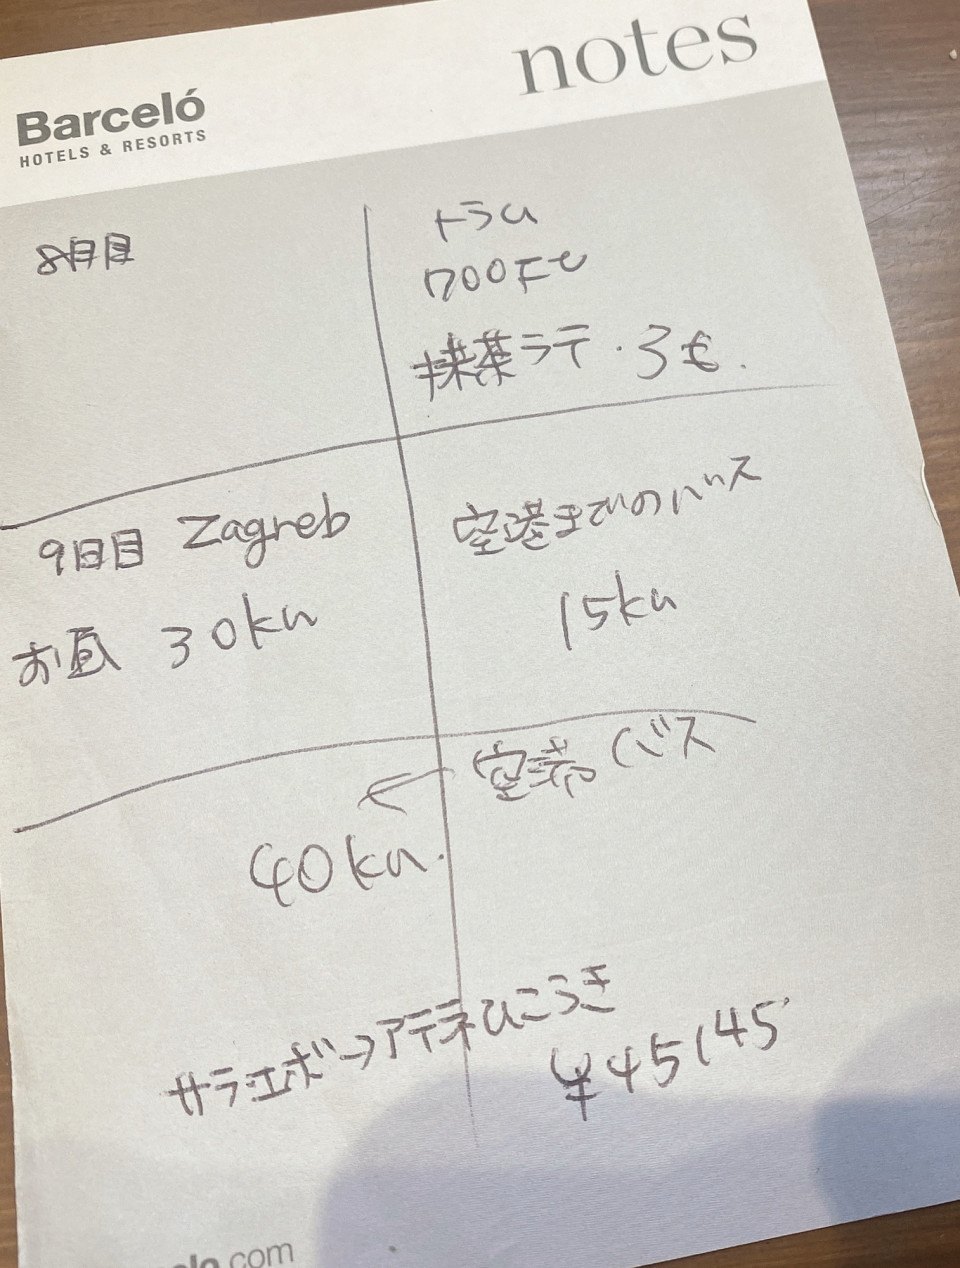 notes
Barceló
HOTELS & RESORTS
8日目
トラム
1700Ft
抹茶ラテ・3€.
9日目 Zagreb
お昼 30kn
空港までのバス
15kn
空港バス
←
40kn.
サラエボ→アテネひこうき
¥45145
.com